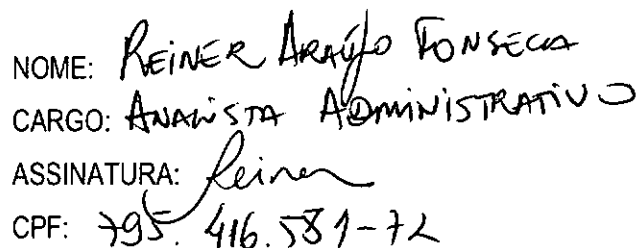 NOME: REINER ARAÚJO FONSECA
CARGO: ANALISTA ADMINISTRATIVO
ASSINATURA: Reiner
CPF: 795.416.581-72